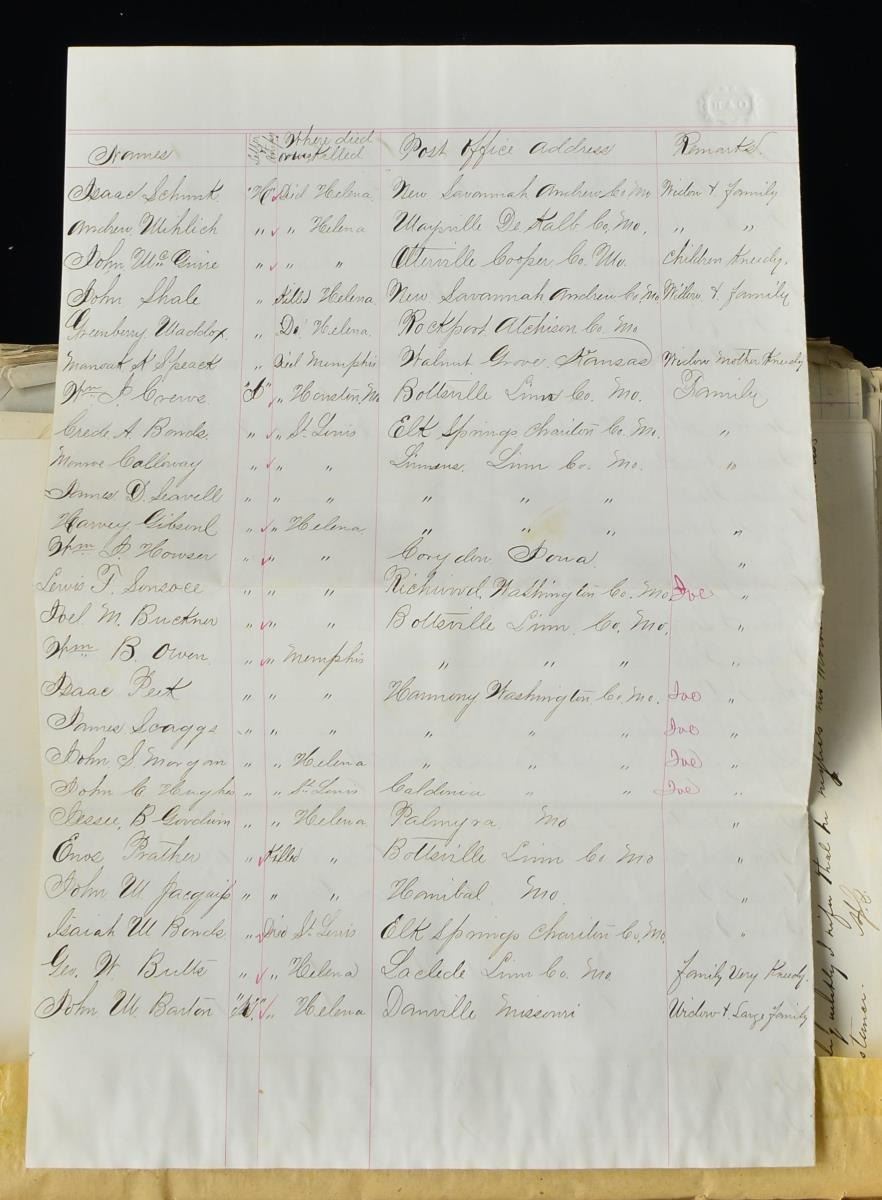 Names Where died or was Killed Post Office address Remarks.
Isaac Schunk "H" Died Helena. New Savannah Andrew Co Mo Widow & family
Andrew Mihlich " " Helena Maysville De Kalb Co, Mo. " "
John McGuire " " " Otterville Cooper Co. Mo. Children Kneedy.
John Shale " Killed Helena New Savannah Andrew Co Mo Widow & family
Greenberry Maddox. " Do Helena. Rockport Atchison Co. Mo
K Speack " Died Memphis Walnut Grove Kansas Widow Mother Kneedy
Wm P. Crews " Houston, Mo Bottsville Linn Co. Mo. Family
Crede A. Bonds. " " St. Louis Elk Springs Chariton Co. Mo. "
Monroe Calloway " " " Linneus. Linn Co. Mo. "
James D. Seavell " " " " " "
Harvey " " Helena. " " " "
Wm P Howser " " " Corydon Iowa. "
Lewis T. " " " Richwood, Washington Co. Mo. "
Joel M. Buckner " " " Bottsville Linn. Co. Mo. "
Wm B. Owen " " Memphis " " " "
Isaac Peek " " " Harmony Washington Co Mo. "
James Scaggs " " " " " " "
John S Morgan " " Helena " " " "
John C Hughes " " St. Louis Caldonia " " "
Jessee, B Goodwin " " Helena Palmyra Mo "
Enos Prather " Killed " Bottsville Linn Co Mo "
John M " " " Hanibal Mo. "
Isaiah M Bonds " Died St. Louis Elk Springs Chariton Co, Mo. "
Geo. W. Butts " " Helena Laclede Linn Co. Mo. family Very Kneedy.
John M Barton " Helena Danville Missouri Widow & Large family